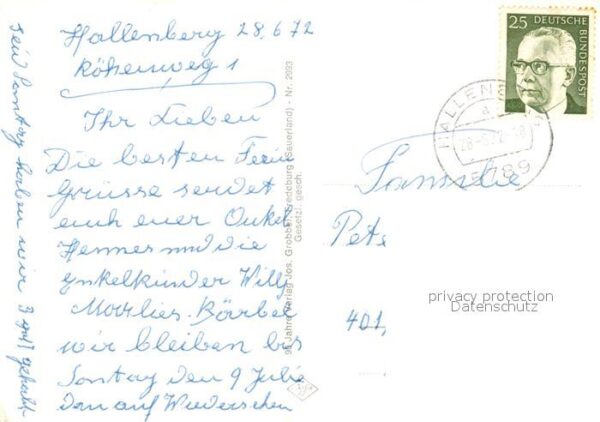 Hallenberg 28.6.72
Röhenweg 1
Ihr Lieben
Die besten Ferien
Grüsse sendet
euch euer Onkel
Hennes und die
Enkelkinder Willy
Marlies. Bärbel
wir bleiben bis
Sontag den 9 Julie
dan auf Wiedersehen
seid Sonntag haben wir 3 gehabt
95 Jahre Verlag Jos. Grobbel, Fredeburg (Sauerland) - Nr. 2693
Gesetzl. gesch.
25 DEUTSCHE
BUNDESPOST
HALLEN
a
28.-6.72-18
5789
Familie
Pete
401,
privacy protection
Datenschutz